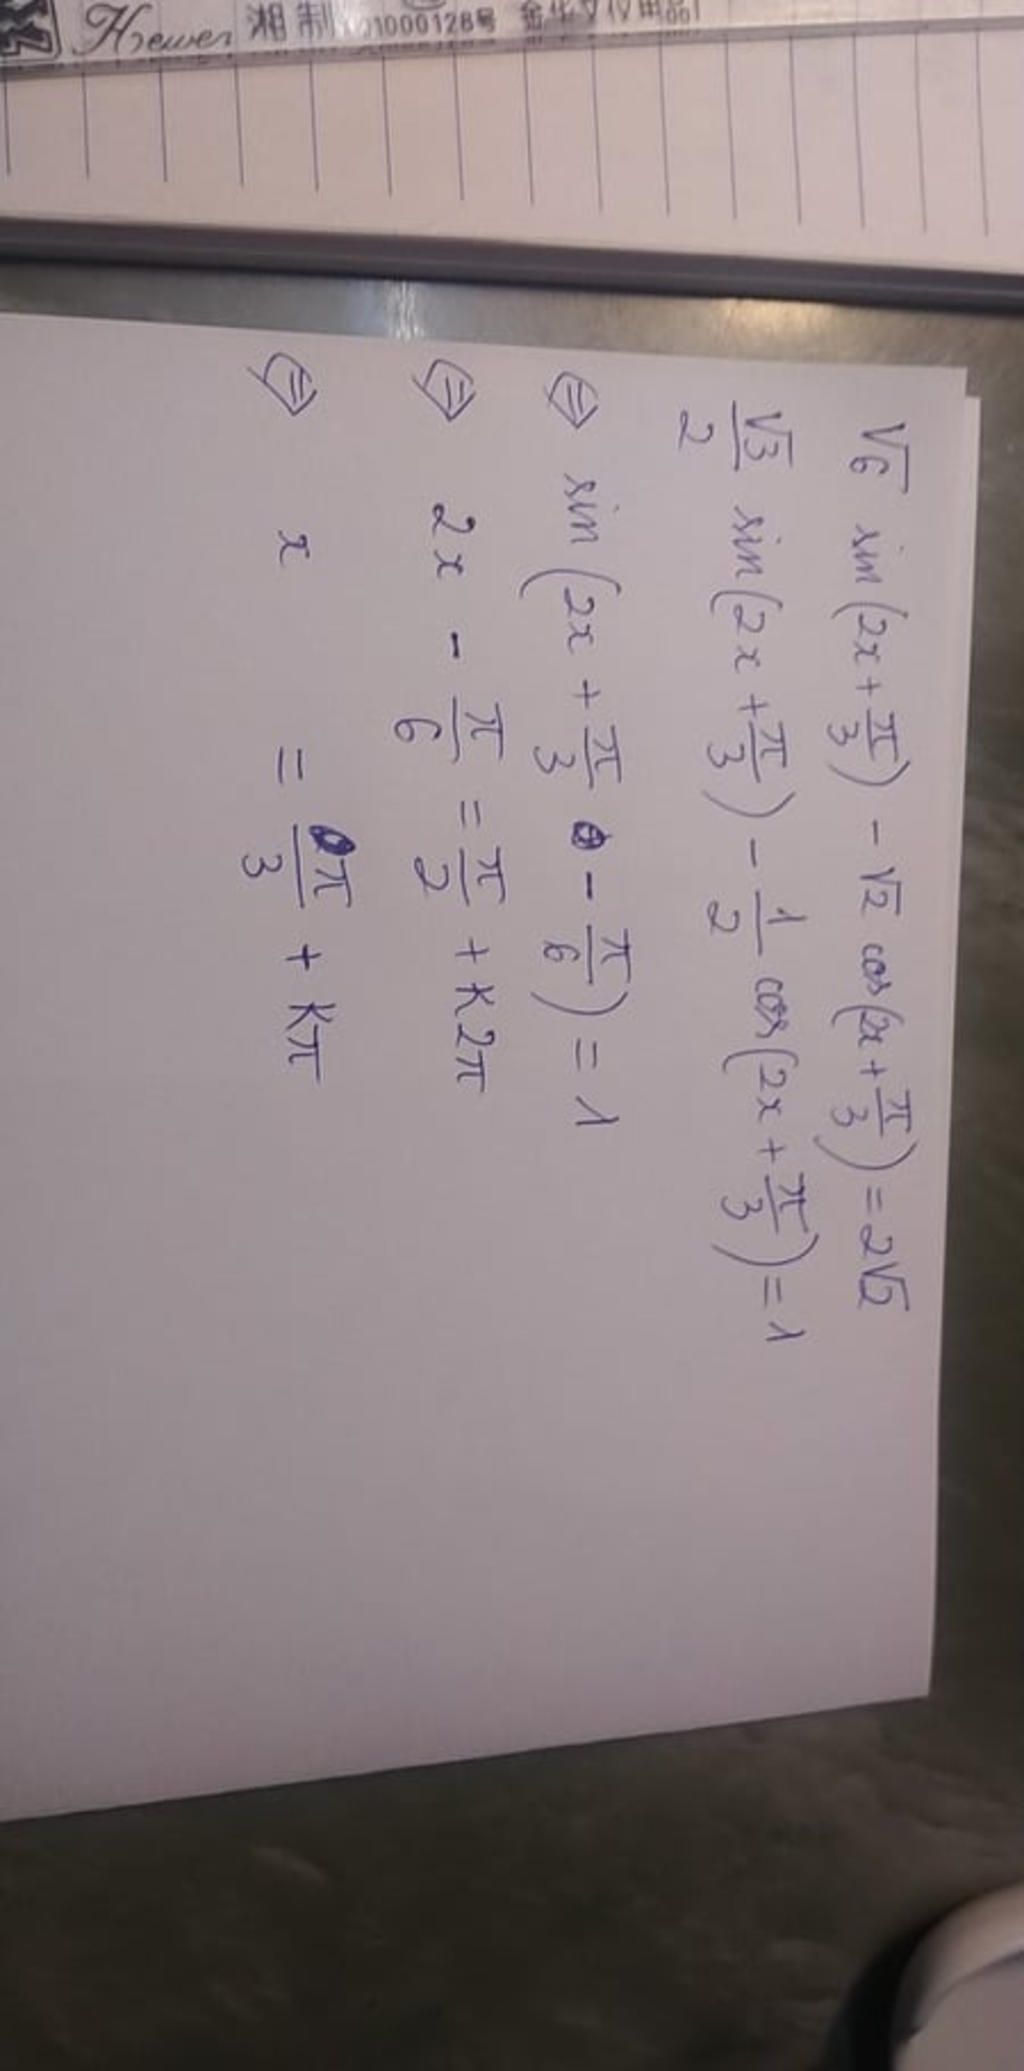 Hewen 湘制 01000128号
√6 sin(2x + π/3) - √2 cos(2x + π/3) = 2√2
√3/2 sin(2x + π/3) - 1/2 cos(2x + π/3) = 1
⇔ sin(2x + π/3 - π/6) = 1
⇔ 2x - π/6 = π/2 + k2π
⇔ x = π/3 + kπ